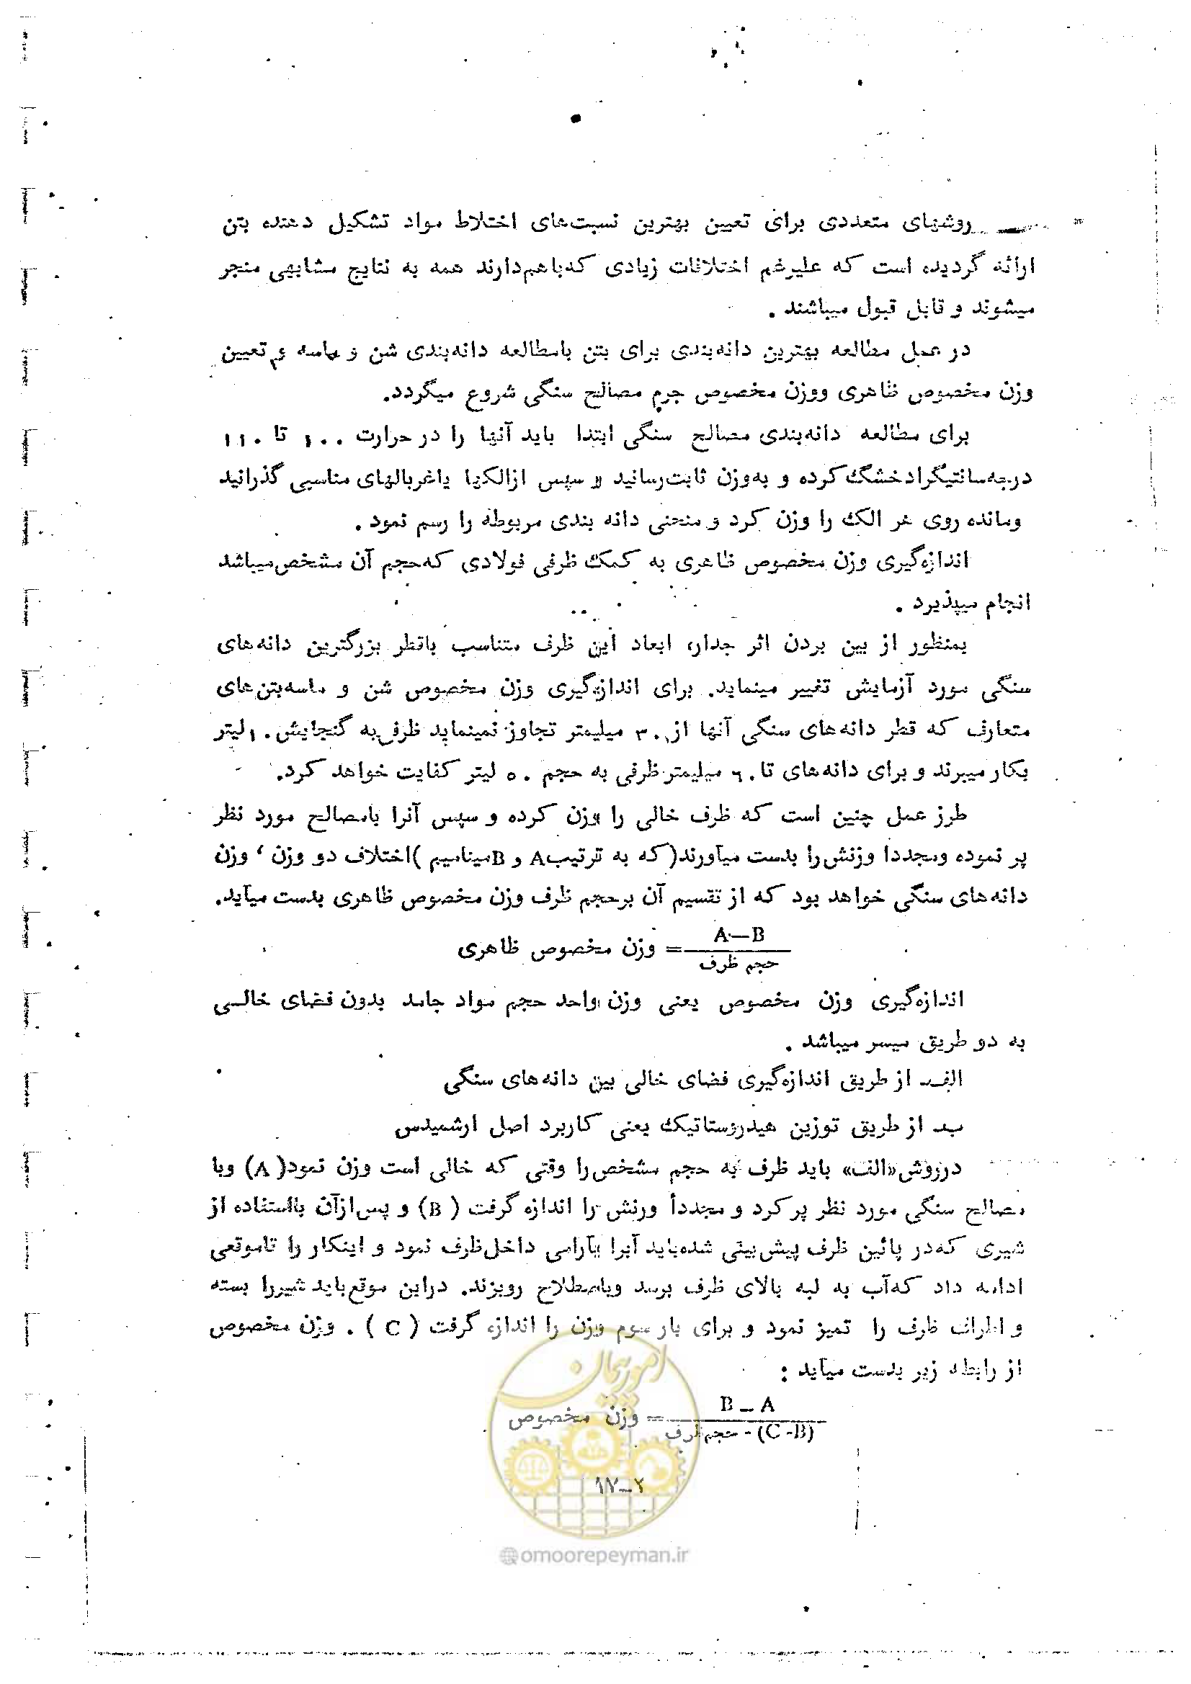 روشهای متعددی برای تعیین بهترین نسبت‌های اختلاط مواد تشکیل دهنده بتن
ارائه گردیده است که علیرغم اختلافات زیادی که‌باهم‌دارند همه به نتایج مشابهی منجر
میشوند و قابل قبول میباشند .
در عمل مطالعه بهترین دانه‌بندی برای بتن بامطالعه دانه‌بندی شن و ماسه و تعیین
وزن مخصوص ظاهری ووزن مخصوص جرم مصالح سنگی شروع میگردد.
برای مطالعه دانه‌بندی مصالح سنگی ابتدا باید آنها را در حرارت ۱۰۰ تا ۱۱۰
درجه‌سانتیگرادخشگ کرده و به‌وزن ثابت‌رسانید و سپس ازالکها یاغربالهای مناسبی گذرانید
ومانده روی هر الک را وزن کرد و منحنی دانه بندی مربوطه را رسم نمود .
اندازه‌گیری وزن مخصوص ظاهری به کمک ظرفی فولادی که‌حجم آن مشخص‌میباشد
انجام میپذیرد .
بمنظور از بین بردن اثر جدار، ابعاد این ظرف متناسب باقطر بزرگترین دانه‌های
سنگی مورد آزمایش تغییر مینماید. برای اندازه‌گیری وزن مخصوص شن و ماسه‌بتن‌های
متعارف که قطر دانه‌های سنگی آنها از ۳۰ میلیمتر تجاوز نمینماید ظرفی‌به گنجایش ۱۰ لیتر
بکار میبرند و برای دانه‌های تا ۶۰ میلیمتر ظرفی به حجم ۵۰ لیتر کفایت خواهد کرد.
طرز عمل چنین است که ظرف خالی را وزن کرده و سپس آنرا بامصالح مورد نظر
پر نموده ومجددا وزنش‌را بدست میآورند(که به ترتیبA و Bمینامیم )اختلاف دو وزن ، وزن
دانه‌های سنگی خواهد بود که از تقسیم آن برحجم ظرف وزن مخصوص ظاهری بدست میآید.
A—B
وزن مخصوص ظاهری =
حجم ظرف
اندازه‌گیری وزن مخصوص یعنی وزن واحد حجم مواد جامد بدون فضای خالـی
به دو طریق میسر میباشد .
الف‌ـ از طریق اندازه‌گیری فضای خالی بین دانه‌های سنگی
ب‌ـ از طریق توزین هیدرؤستاتیک یعنی کاربرد اصل ارشمیدس
درروش«الف» باید ظرف به حجم مشخص‌را وقتی که خالی است وزن نمود( A) وبا
مصالح سنگی مورد نظر پر کرد و مجدداً ورنش را اندازه گرفت ( B) و پس‌ازآن بااستفاده از
شیری که‌در پائین ظرف پیش‌بینی شده‌باید آبرا بآرامی داخل‌ظرف نمود و اینکار را تاموقعی
ادامه داد که‌آب به لبه بالای ظرف برسد وباصطلاح روبزند. دراین موقع‌باید شیررا بسته
و اطراف ظرف را تمیز نمود و برای بار سوم وزن را اندازه گرفت ( C ) . وزن مخصوص
از رابطه زیر بدست میآید :
B — A
وزن مخصوص =
حجم ظرف - (C -B)
امور پیمان
۲ـ۱۷
@omoorepeyman.ir